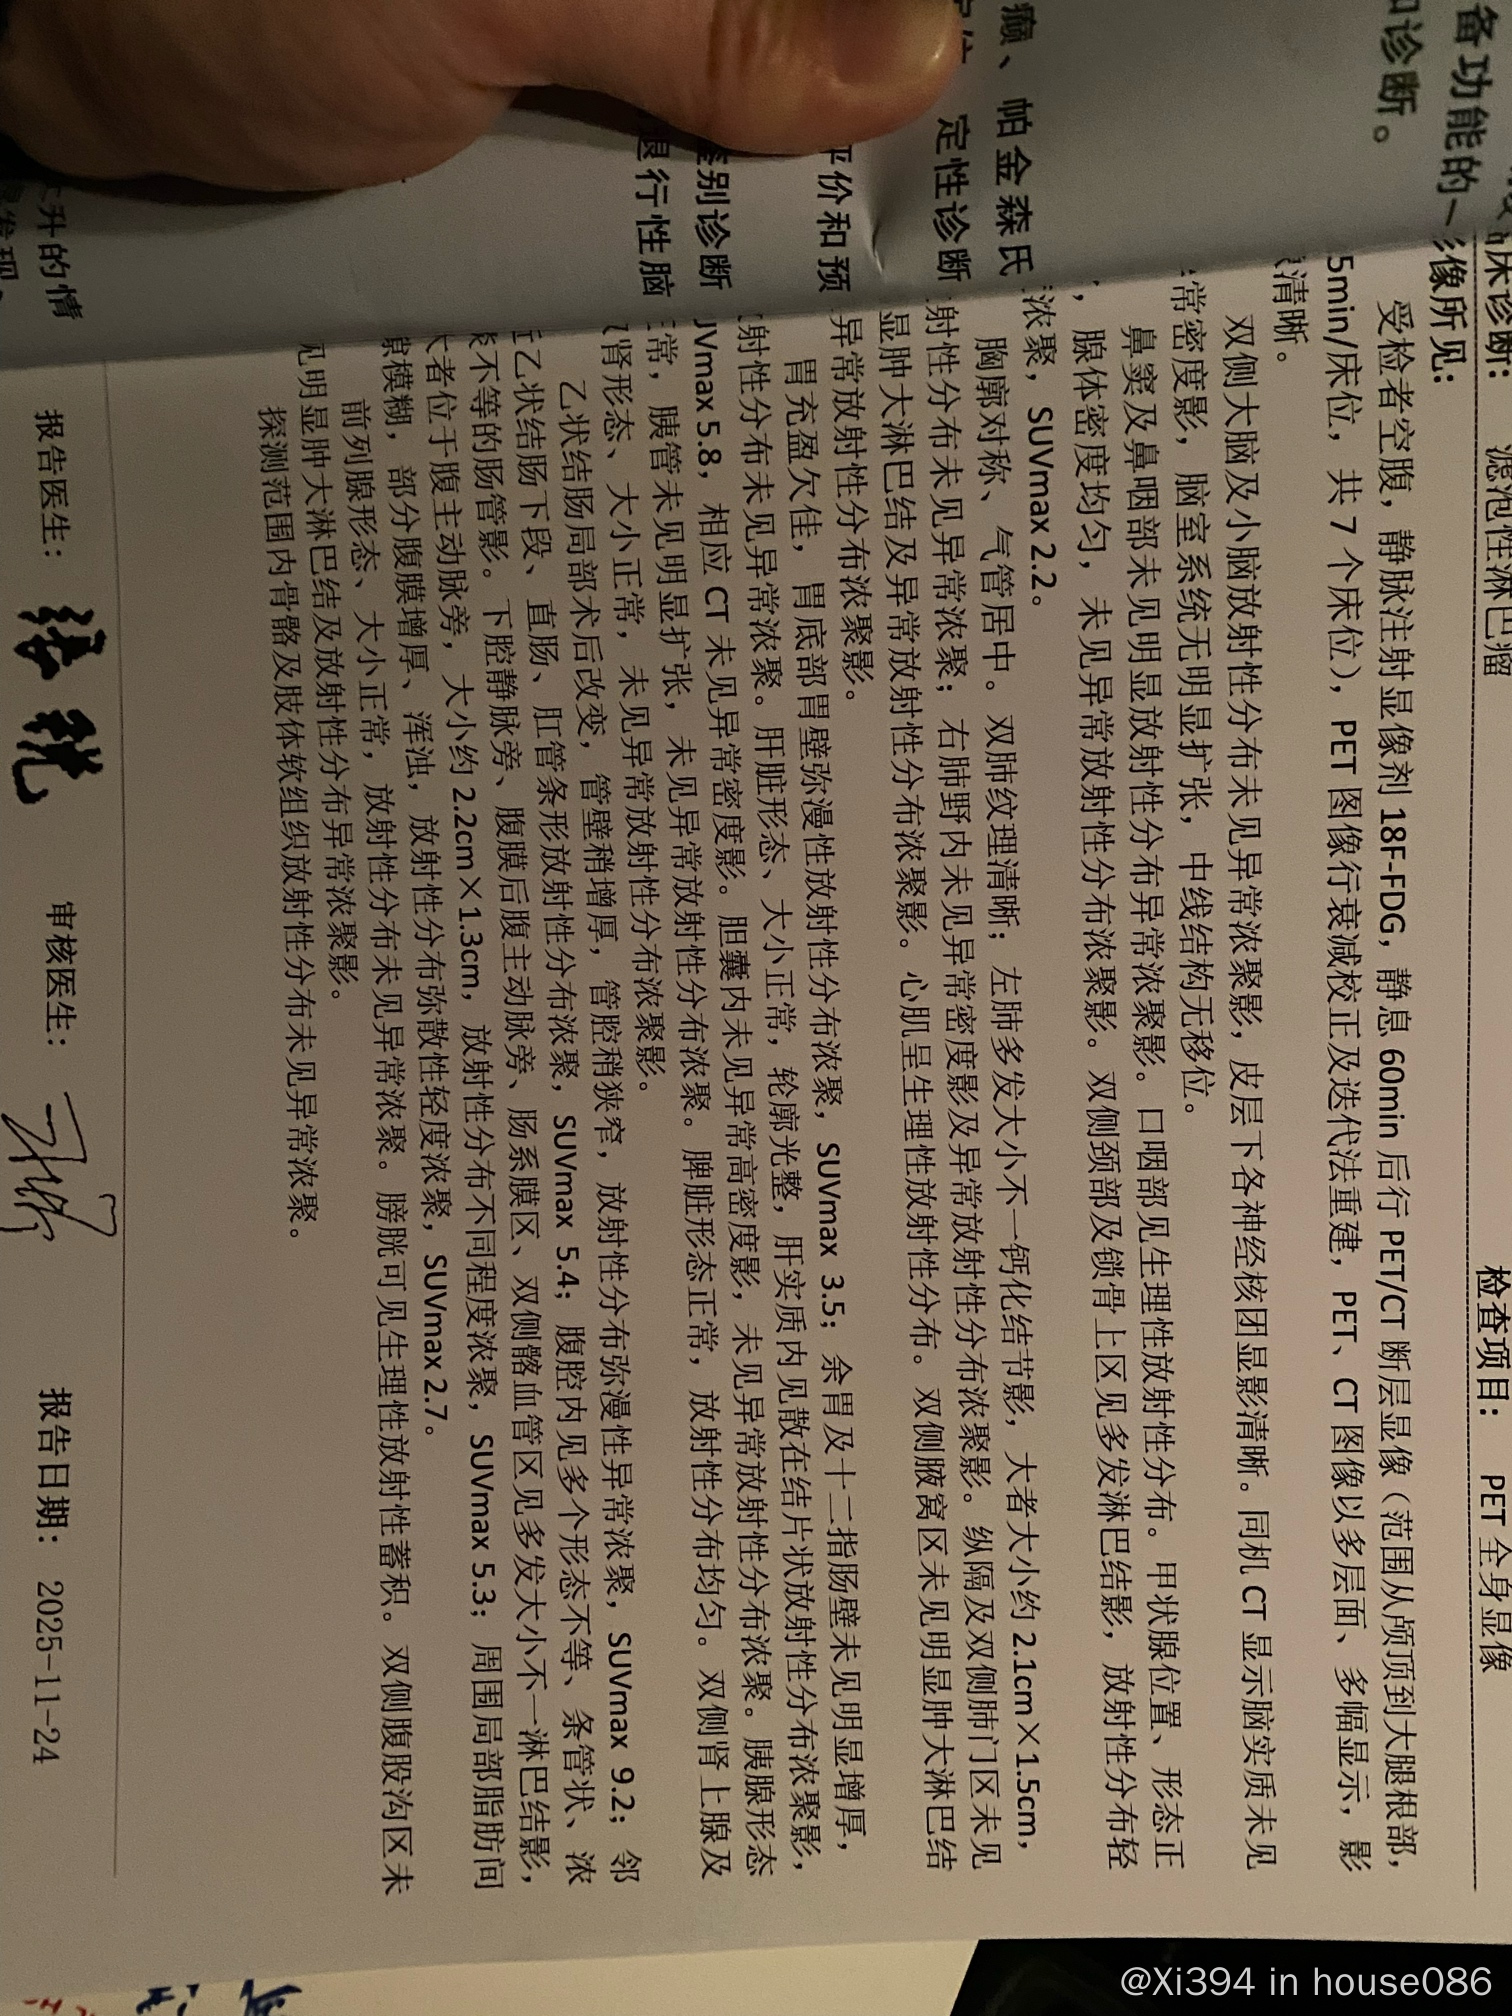 备功能的一
和诊断。
癫、帕金森氏
定性诊断
平价和预
鉴别诊断
退行性脑
升的情
床诊断： 滤泡性淋巴瘤 检查项目： PET 全身显像
影像所见：
受检者空腹，静脉注射显像剂 18F-FDG，静息 60min 后行 PET/CT 断层显像（范围从颅顶到大腿根部，
5min/床位，共 7 个床位），PET 图像行衰减校正及迭代法重建，PET、CT 图像以多层面、多幅显示，影
清晰。
双侧大脑及小脑放射性分布未见异常浓聚影，皮层下各神经核团显影清晰。同机 CT 显示脑实质未见
常密度影，脑室系统无明显扩张，中线结构无移位。
鼻窦及鼻咽部未见明显放射性分布异常浓聚影。口咽部见生理性放射性分布。甲状腺位置、形态正
，腺体密度均匀，未见异常放射性分布浓聚影。双侧颈部及锁骨上区见多发淋巴结影，放射性分布轻
浓聚，SUVmax 2.2。
胸廓对称、气管居中。双肺纹理清晰；左肺多发大小不一钙化结节影，大者大小约 2.1cm×1.5cm，
射性分布未见异常浓聚；右肺野内未见异常密度影及异常放射性分布浓聚影。纵隔及双侧肺门区未见
显肿大淋巴结及异常放射性分布浓聚影。心肌呈生理性放射性分布。双侧腋窝区未见明显肿大淋巴结
异常放射性分布浓聚影。
胃充盈欠佳，胃底部胃壁弥漫性放射性分布浓聚，SUVmax 3.5；余胃及十二指肠壁未见明显增厚，
射性分布未见异常浓聚。肝脏形态、大小正常，轮廓光整，肝实质内见散在结片状放射性分布浓聚影，
UVmax 5.8，相应 CT 未见异常密度影。胆囊内未见异常高密度影，未见异常放射性分布浓聚。胰腺形态
常，胰管未见明显扩张，未见异常放射性分布浓聚。脾脏形态正常，放射性分布均匀。双侧肾上腺及
肾形态、大小正常，未见异常放射性分布浓聚影。
乙状结肠局部术后改变，管壁稍增厚，管腔稍狭窄，放射性分布弥漫性异常浓聚，SUVmax 9.2；邻
乙状结肠下段、直肠、肛管条形放射性分布浓聚，SUVmax 5.4；腹腔内见多个形态不等、条管状、浓
淡不等的肠管影。下腔静脉旁、腹膜后腹主动脉旁、肠系膜区、双侧髂血管区见多发大小不一淋巴结影，
大者位于腹主动脉旁，大小约 2.2cm×1.3cm，放射性分布不同程度浓聚，SUVmax 5.3；周围局部脂肪间
隙模糊，部分腹膜增厚、浑浊，放射性分布弥散性轻度浓聚，SUVmax 2.7。
前列腺形态、大小正常，放射性分布未见异常浓聚。膀胱可见生理性放射性蓄积。双侧腹股沟区未
见明显肿大淋巴结及放射性分布异常浓聚影。
探测范围内骨骼及肢体软组织放射性分布未见异常浓聚。
报告医生： 审核医生： 报告日期： 2025-11-24
@Xi394 in house086